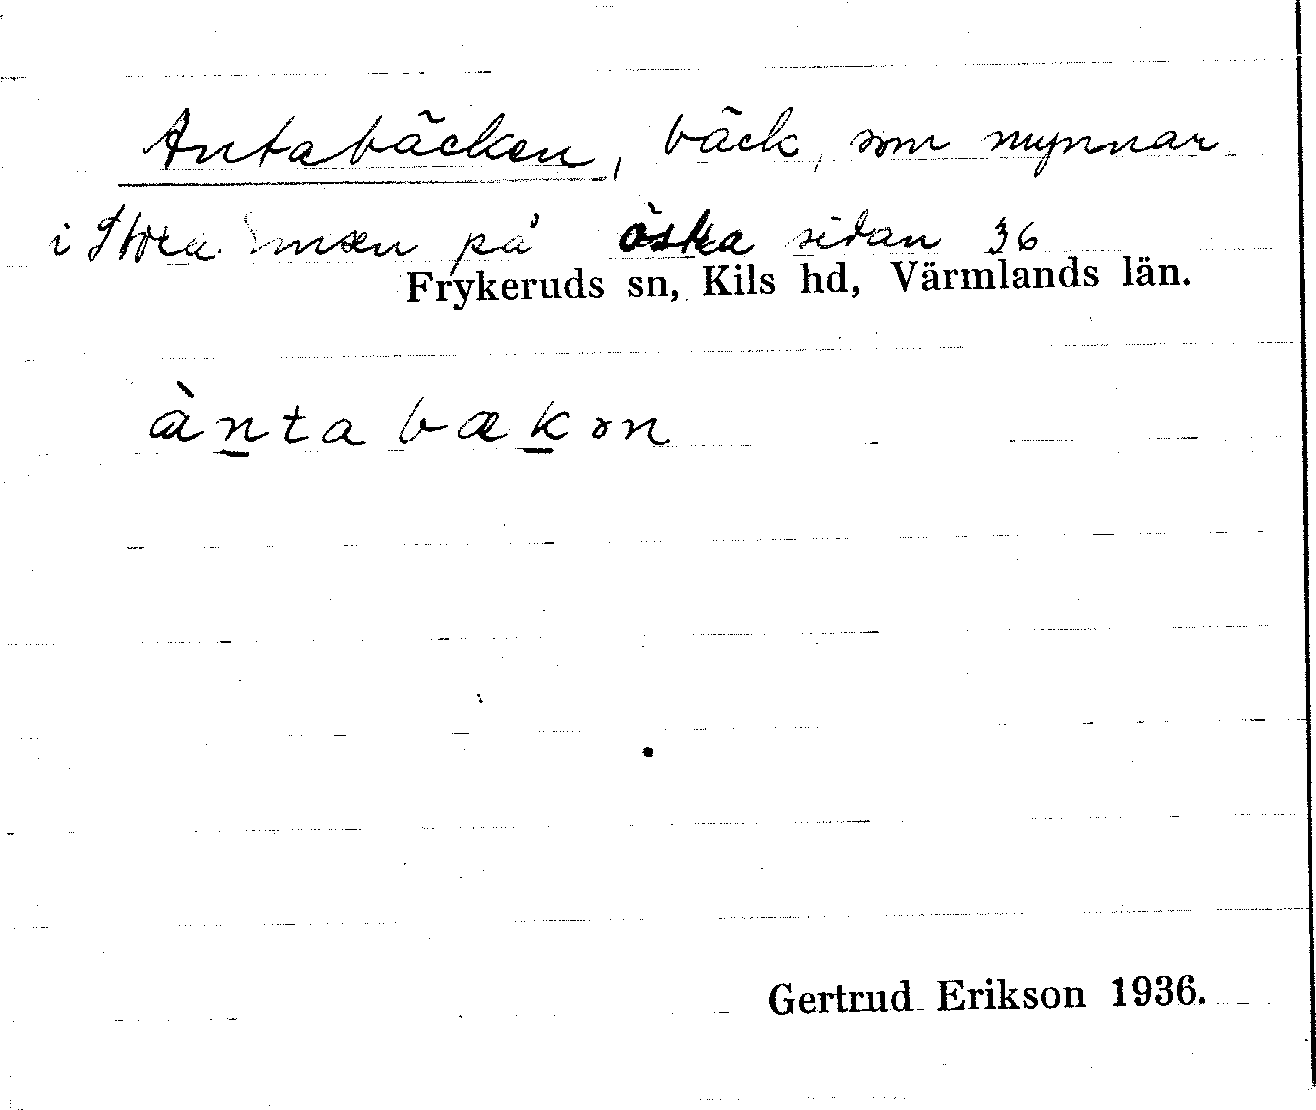 Antabäcken, bäck, som mynnar
i Stora Emsen på östra sidan 36
Frykeruds sn, Kils hd, Värmlands län.
àntabækən
Gertrud Erikson 1936.